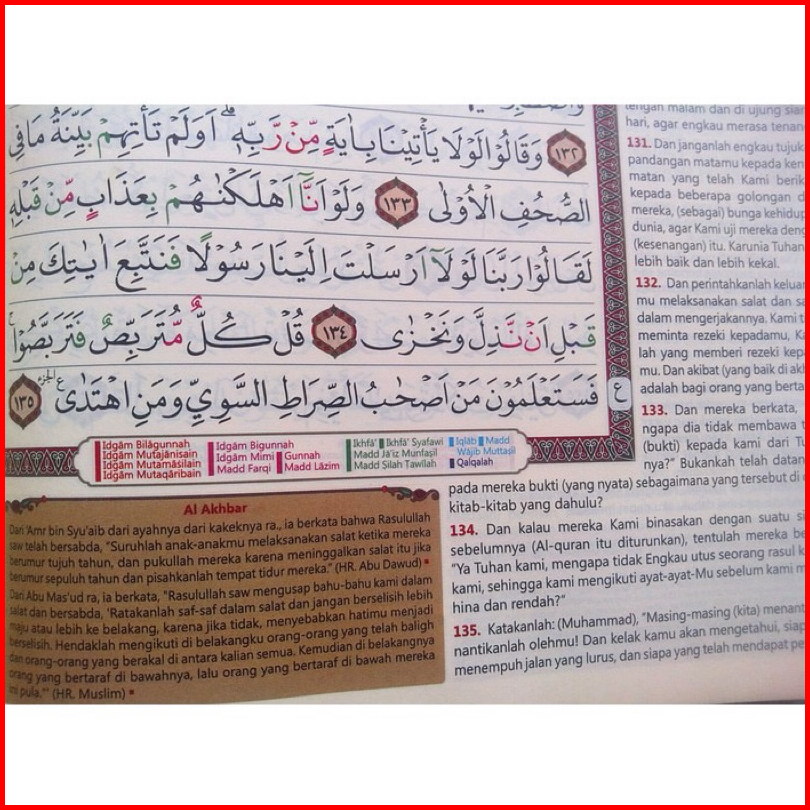 ١٣٢ وَقَالُوْا لَوْلَا يَأْتِيْنَا بِاٰيَةٍ مِّنْ رَّبِّهٖۗ اَوَلَمْ تَأْتِهِمْ بَيِّنَةُ مَا فِى
الصُّحُفِ الْاُوْلٰى ١٣٣ وَلَوْ اَنَّآ اَهْلَكْنٰهُمْ بِعَذَابٍ مِّنْ قَبْلِهٖ
لَقَالُوْا رَبَّنَا لَوْلَآ اَرْسَلْتَ اِلَيْنَا رَسُوْلًا فَنَتَّبِعَ اٰيٰتِكَ مِنْ
قَبْلِ اَنْ نَّذِلَّ وَنَخْزٰى ١٣٤ قُلْ كُلٌّ مُّتَرَبِّصٌ فَتَرَبَّصُوْاۚ
فَسَتَعْلَمُوْنَ مَنْ اَصْحٰبُ الصِّرَاطِ السَّوِيِّ وَمَنِ اهْتَدٰى ع الجزء ١٣٥
ع
Idgām Bilāgunnah
Idgām Mutajānisain
Idgām Mutamāsilain
Idgām Mutaqāribain
Idgām Bigunnah
Idgām Mimi Gunnah
Madd Farqi Madd Lāzim
Ikhfā' Ikhfā' Syafawi
Madd Jā'iz Munfaṣil
Madd Silah Ṭawīlah
Iqlāb Madd
Wājib Muttasil
Qalqalah
Al Akhbar
Dari 'Amr bin Syu'aib dari ayahnya dari kakeknya ra., ia berkata bahwa Rasulullah
saw telah bersabda, "Suruhlah anak-anakmu melaksanakan salat ketika mereka
berumur tujuh tahun, dan pukullah mereka karena meninggalkan salat itu jika
berumur sepuluh tahun dan pisahkanlah tempat tidur mereka." (HR. Abu Dawud)
Dari Abu Mas'ud ra, ia berkata, "Rasulullah saw mengusap bahu-bahu kami dalam
salat dan bersabda, 'Ratakanlah saf-saf dalam salat dan jangan berselisih lebih
maju atau lebih ke belakang, karena jika tidak, menyebabkan hatimu menjadi
berselisih. Hendaklah mengikuti di belakangku orang-orang yang telah baligh
dan orang-orang yang berakal di antara kalian semua. Kemudian di belakangnya
orang yang bertaraf di bawahnya, lalu orang yang bertaraf di bawah mereka
ini pula.'" (HR. Muslim)
tengah malam dan di ujung
hari, agar engkau merasa
131. Dan janganlah engkau
pandangan matamu kepada
matan yang telah Kami
kepada beberapa golongan
mereka, (sebagai) bunga
dunia, agar Kami uji mereka
(kesenangan) itu. Karunia
lebih baik dan lebih kekal.
132. Dan perintahkanlah
mu melaksanakan salat dan
dalam mengerjakannya. Kami
meminta rezeki kepadamu,
lah yang memberi rezeki
mu. Dan akibat (yang baik di
adalah bagi orang yang
133. Dan mereka berkata,
ngapa dia tidak membawa
(bukti) kepada kami dari
nya?" Bukankah telah
pada mereka bukti (yang nyata) sebagaimana yang tersebut di
kitab-kitab yang dahulu?
134. Dan kalau mereka Kami binasakan dengan suatu
sebelumnya (Al-quran itu diturunkan), tentulah mereka
"Ya Tuhan kami, mengapa tidak Engkau utus seorang rasul
kami, sehingga kami mengikuti ayat-ayat-Mu sebelum kami
hina dan rendah?"
135. Katakanlah: (Muhammad), "Masing-masing (kita)
nantikanlah olehmu! Dan kelak kamu akan mengetahui,
menempuh jalan yang lurus, dan siapa yang telah mendapat